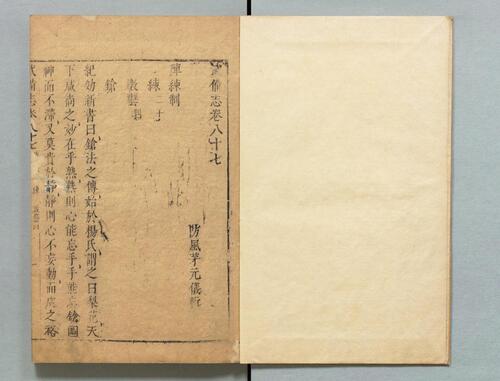 武備志卷八十七
防風茅元儀輯
陣練制
練二十
教藝四
鎗
紀効新書曰鎗法之傳始於楊氏謂之曰梨花天
下咸尚之妙在乎熟熟則心能忘手手能忘鎗圓
神而不滯又莫貴於靜靜則心不妄動而處之裕
武備志卷八十七